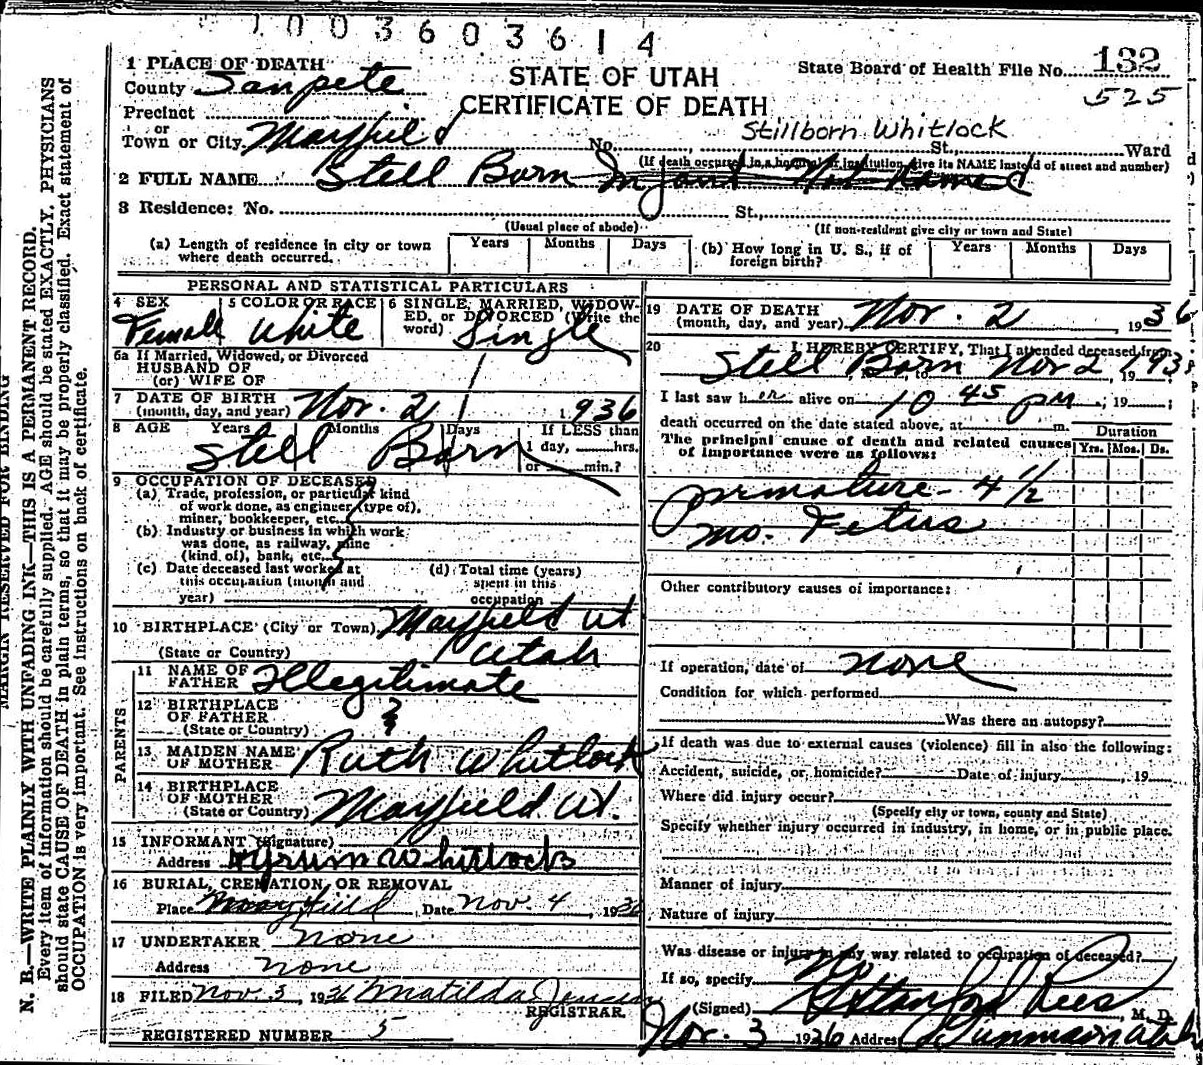 1003603614
1 PLACE OF DEATH
County Sanpete
STATE OF UTAH
CERTIFICATE OF DEATH
State Board of Health File No. 132
525
Precinct
or
Town or City Mayfield No. St., Ward
Stillborn Whitlock
(If death occurred in a hospital or institution give its NAME instead of street and number)
2 FULL NAME Stell Born Infant Not Named
3 Residence: No. St.,
(Usual place of abode) (If non-resident give city or town and State)
(a) Length of residence in city or town where death occurred. Years Months Days (b) How long in U. S., if of foreign birth? Years Months Days
PERSONAL AND STATISTICAL PARTICULARS
4 SEX Female
5 COLOR OR RACE White
6 SINGLE, MARRIED, WIDOWED, OR DIVORCED (Write the word) Single
6a If Married, Widowed, or Divorced
HUSBAND OF
(or) WIFE OF
7 DATE OF BIRTH
(month, day, and year) Nov. 2 1936
8 AGE Years Months Days If LESS than
1 day, hrs.
or min.?
Stell Born
9 OCCUPATION OF DECEASED
(a) Trade, profession, or particular kind
of work done, as engineer (type of),
miner, bookkeeper, etc.
(b) Industry or business in which work
was done, as railway, mine
(kind of), bank, etc.
(c) Date deceased last worked at
this occupation (month and
year)
(d) Total time (years)
spent in this
occupation
10 BIRTHPLACE (City or Town) Mayfield Ut
(State or Country) Utah
PARENTS
11 NAME OF
FATHER Illegitimate
12 BIRTHPLACE
OF FATHER ?
(State or Country)
13 MAIDEN NAME
OF MOTHER Ruth Whitlock
14 BIRTHPLACE
OF MOTHER
(State or Country) Mayfield Ut.
15 INFORMANT (Signature)
Address Hyrum Whitlock
16 BURIAL, CREMATION, OR REMOVAL
Place Mayfield Date Nov. 4, 1936
17 UNDERTAKER none
Address none
18 FILED Nov. 3, 1936 Matilda Jensen
REGISTRAR.
REGISTERED NUMBER 5
19 DATE OF DEATH
(month, day, and year) Nov. 2, 1936
20 I HEREBY CERTIFY, That I attended deceased from
Stell Born Nov 2, 193
I last saw her alive on 10 45 pm, 19 ;
death occurred on the date stated above, at m.
The principal cause of death and related causes
of importance were as follows:
Duration
Yrs. Mos. Ds.
premature - 4 1/2
mo. Fetus
Other contributory causes of importance:
If operation, date of none
Condition for which performed
Was there an autopsy?
If death was due to external causes (violence) fill in also the following:
Accident, suicide, or homicide? Date of injury , 19
Where did injury occur?
(Specify city or town, county and State)
Specify whether injury occurred in industry, in home, or in public place.
Manner of injury
Nature of injury
Was disease or injury in any way related to occupation of deceased?
If so, specify No
(Signed) Stanford Rees, M. D.
Nov. 3 1936 Address Gunnison Utah
MARGIN RESERVED FOR BINDING
N. B.—WRITE PLAINLY WITH UNFADING INK—THIS IS A PERMANENT RECORD.
Every item of information should be carefully supplied. AGE should be stated EXACTLY. PHYSICIANS
should state CAUSE OF DEATH in plain terms, so that it may be properly classified. Exact statement of
OCCUPATION is very important. See instructions on back of certificate.